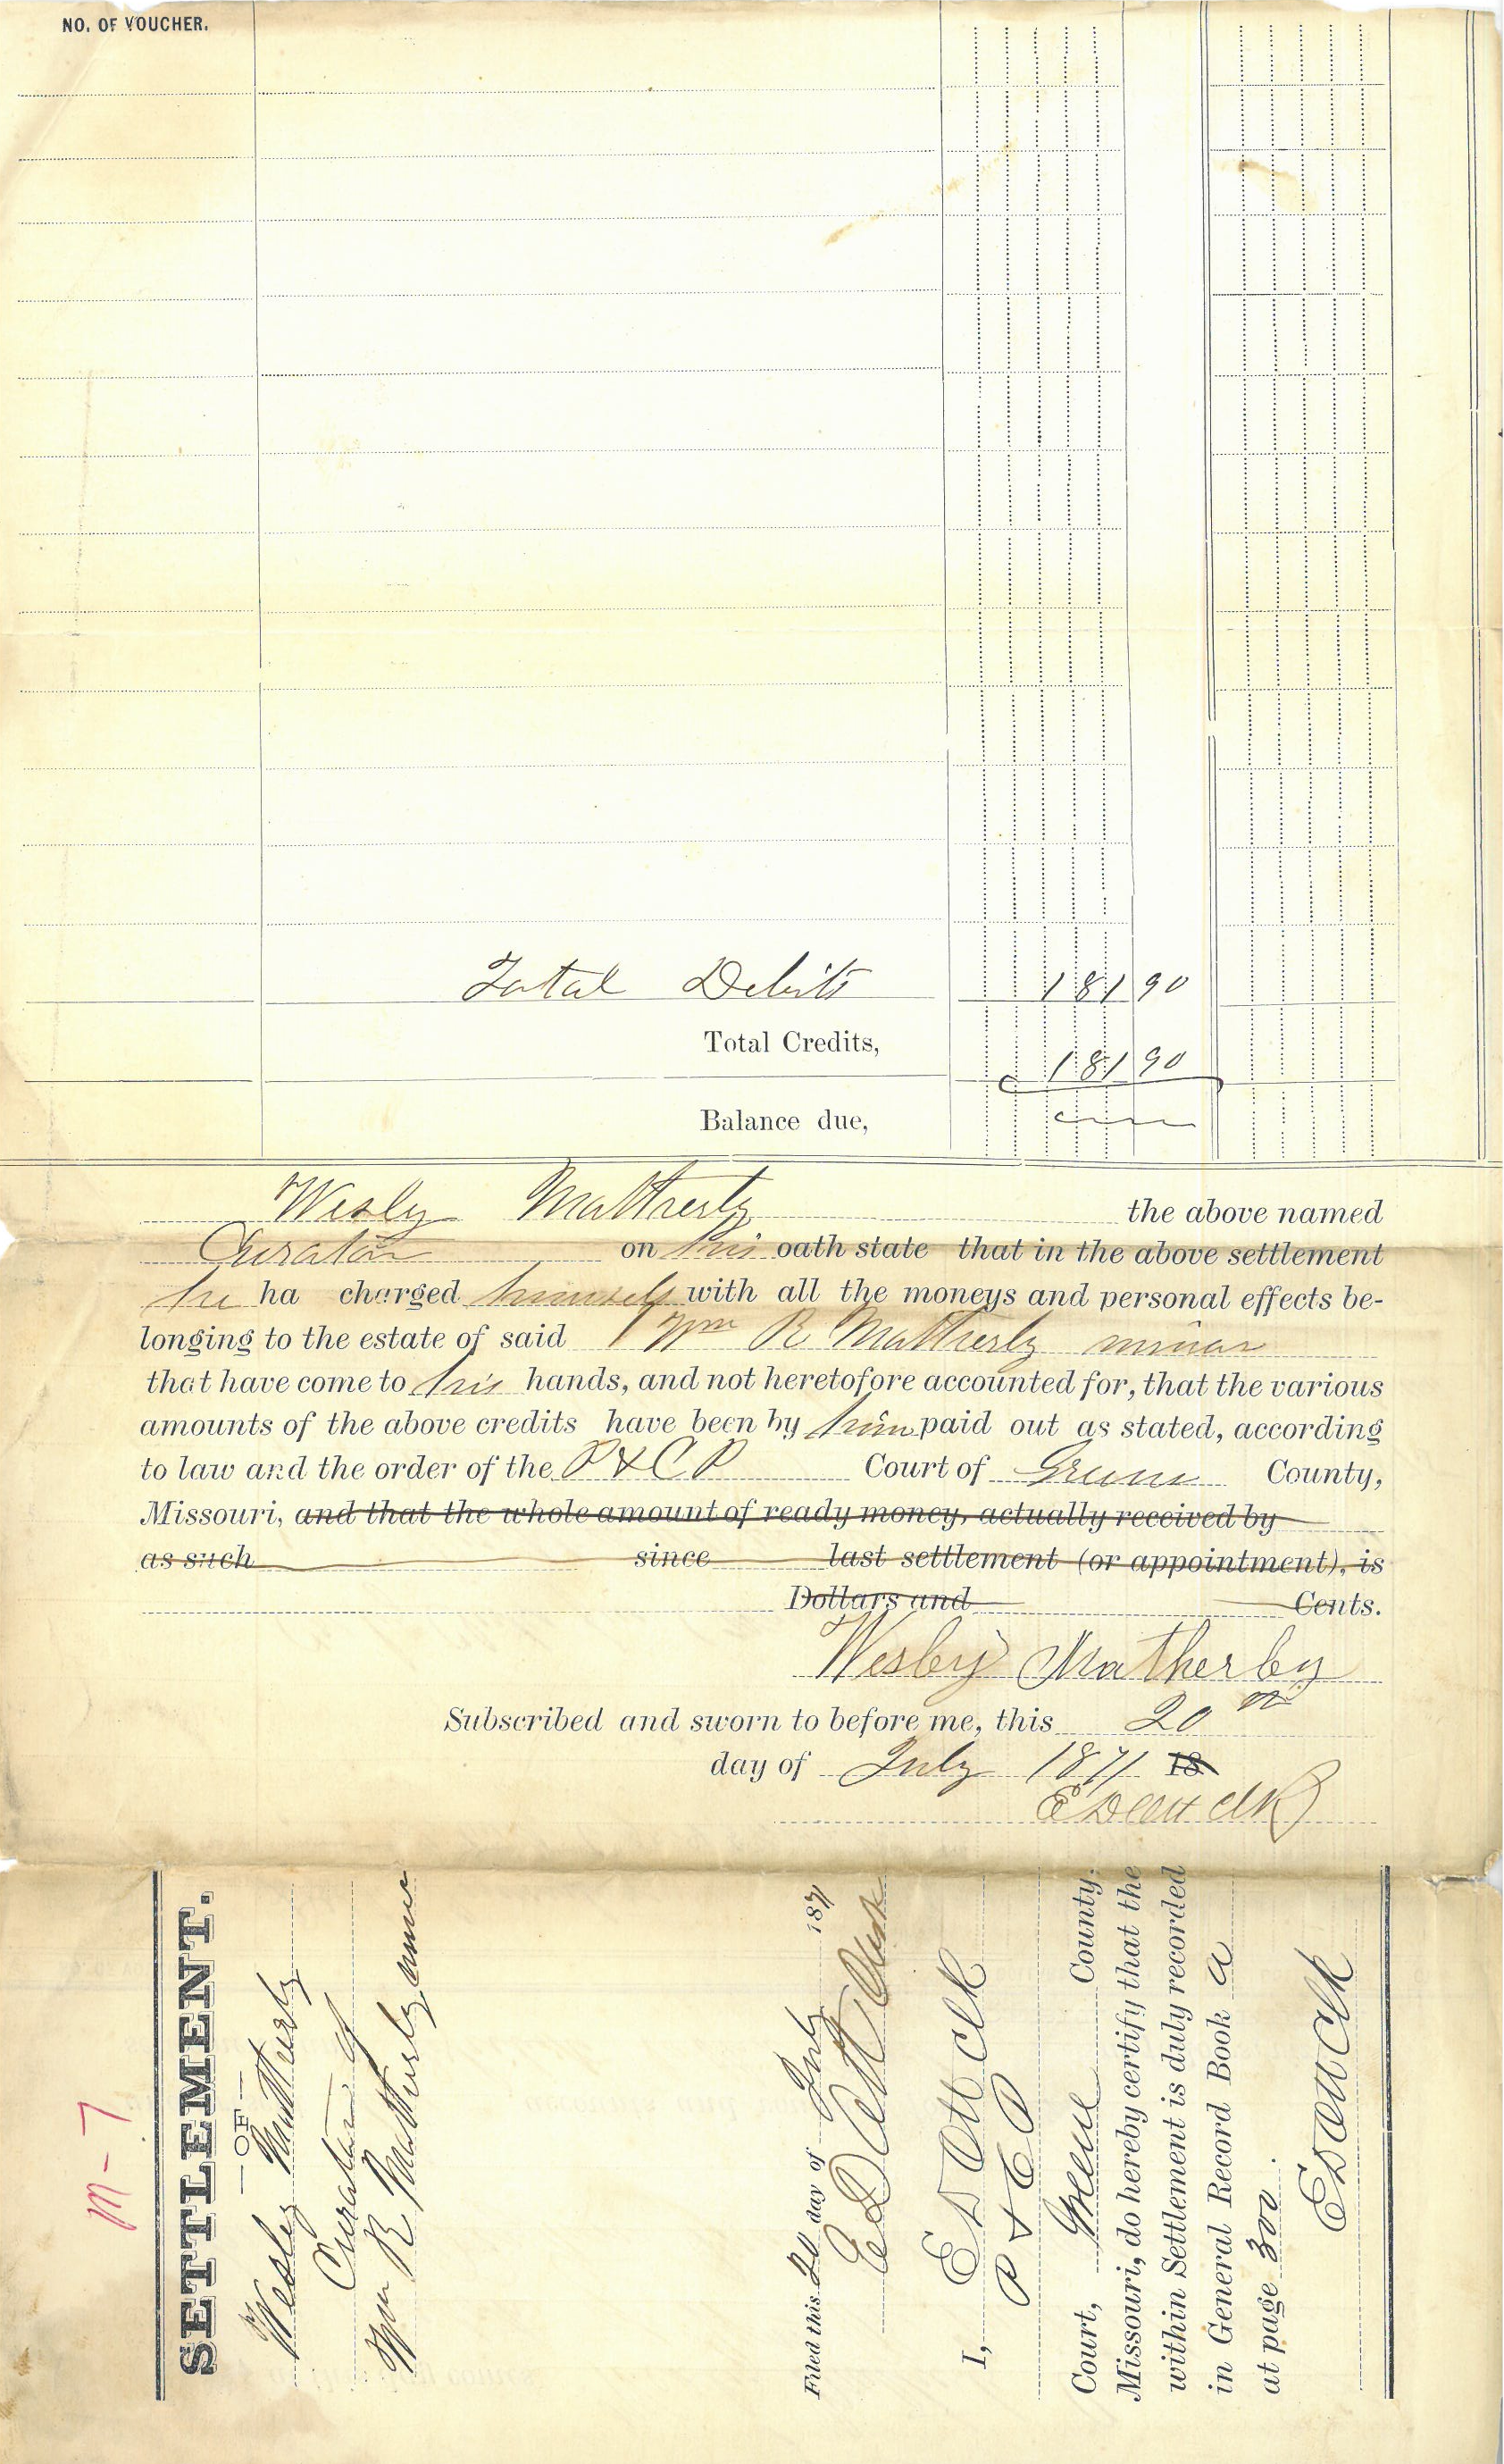 NO. OF VOUCHER.
Total Debits 181 90
Total Credits, 181 90
Balance due,
Wesley Matherly the above named
Curator on his oath state that in the above settlement
he ha charged himself with all the moneys and personal effects be-
longing to the estate of said Wm R Matherly minor
that have come to his hands, and not heretofore accounted for, that the various
amounts of the above credits have been by him paid out as stated, according
to law and the order of the P & C P Court of Greene County,
Missouri, and that the whole amount of ready money, actually received by
as such since last settlement (or appointment), is
Dollars and Cents.
Wesley Matherly
Subscribed and sworn to before me, this 20th
day of July 1871 18
E D Ott Clk
M-7
SETTLEMENT.
—OF—
Wesley Matherly
Curator of
Wm R Matherly minor
Filed this 20 day of July 1871
E D Ott Clerk
I, E D Ott Clk
P & C P
Court, Greene County,
Missouri, do hereby certify that the
within Settlement is duly recorded
in General Record Book A
at page 300.
E D Ott Clk